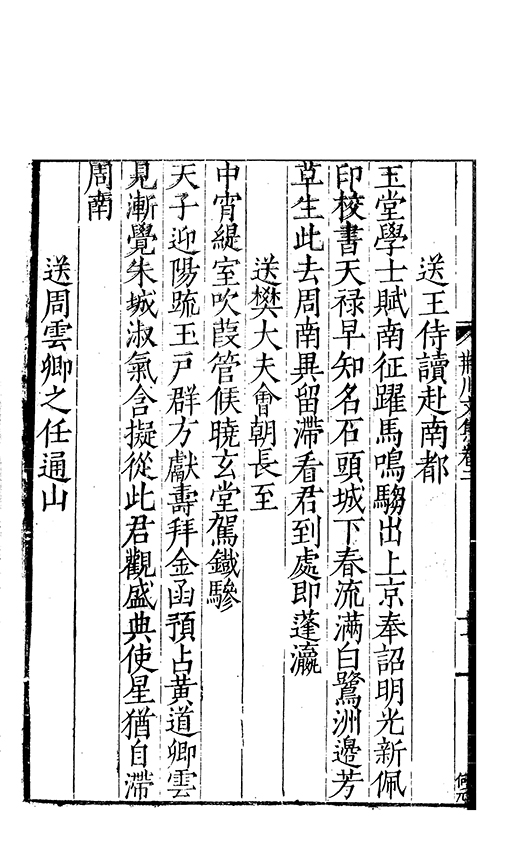 送王侍讀赴南都
玉堂學士賦南征躍馬鳴騶出上京奉詔明光新佩
印校書天祿早知名石頭城下春流滿白鷺洲邊芳
草生此去周南異留滯看君到處即蓬瀛
送樊大夫會朝長至
中宵緹室吹葭管候曉玄堂駕鐵驂
天子迎陽䟽玉戶群方獻壽拜金函預占黃道卿雲
見漸覺朱城淑氣含擬從此君觀盛典使星猶自滯
周南
送周雲卿之任通山
荊川文集卷二